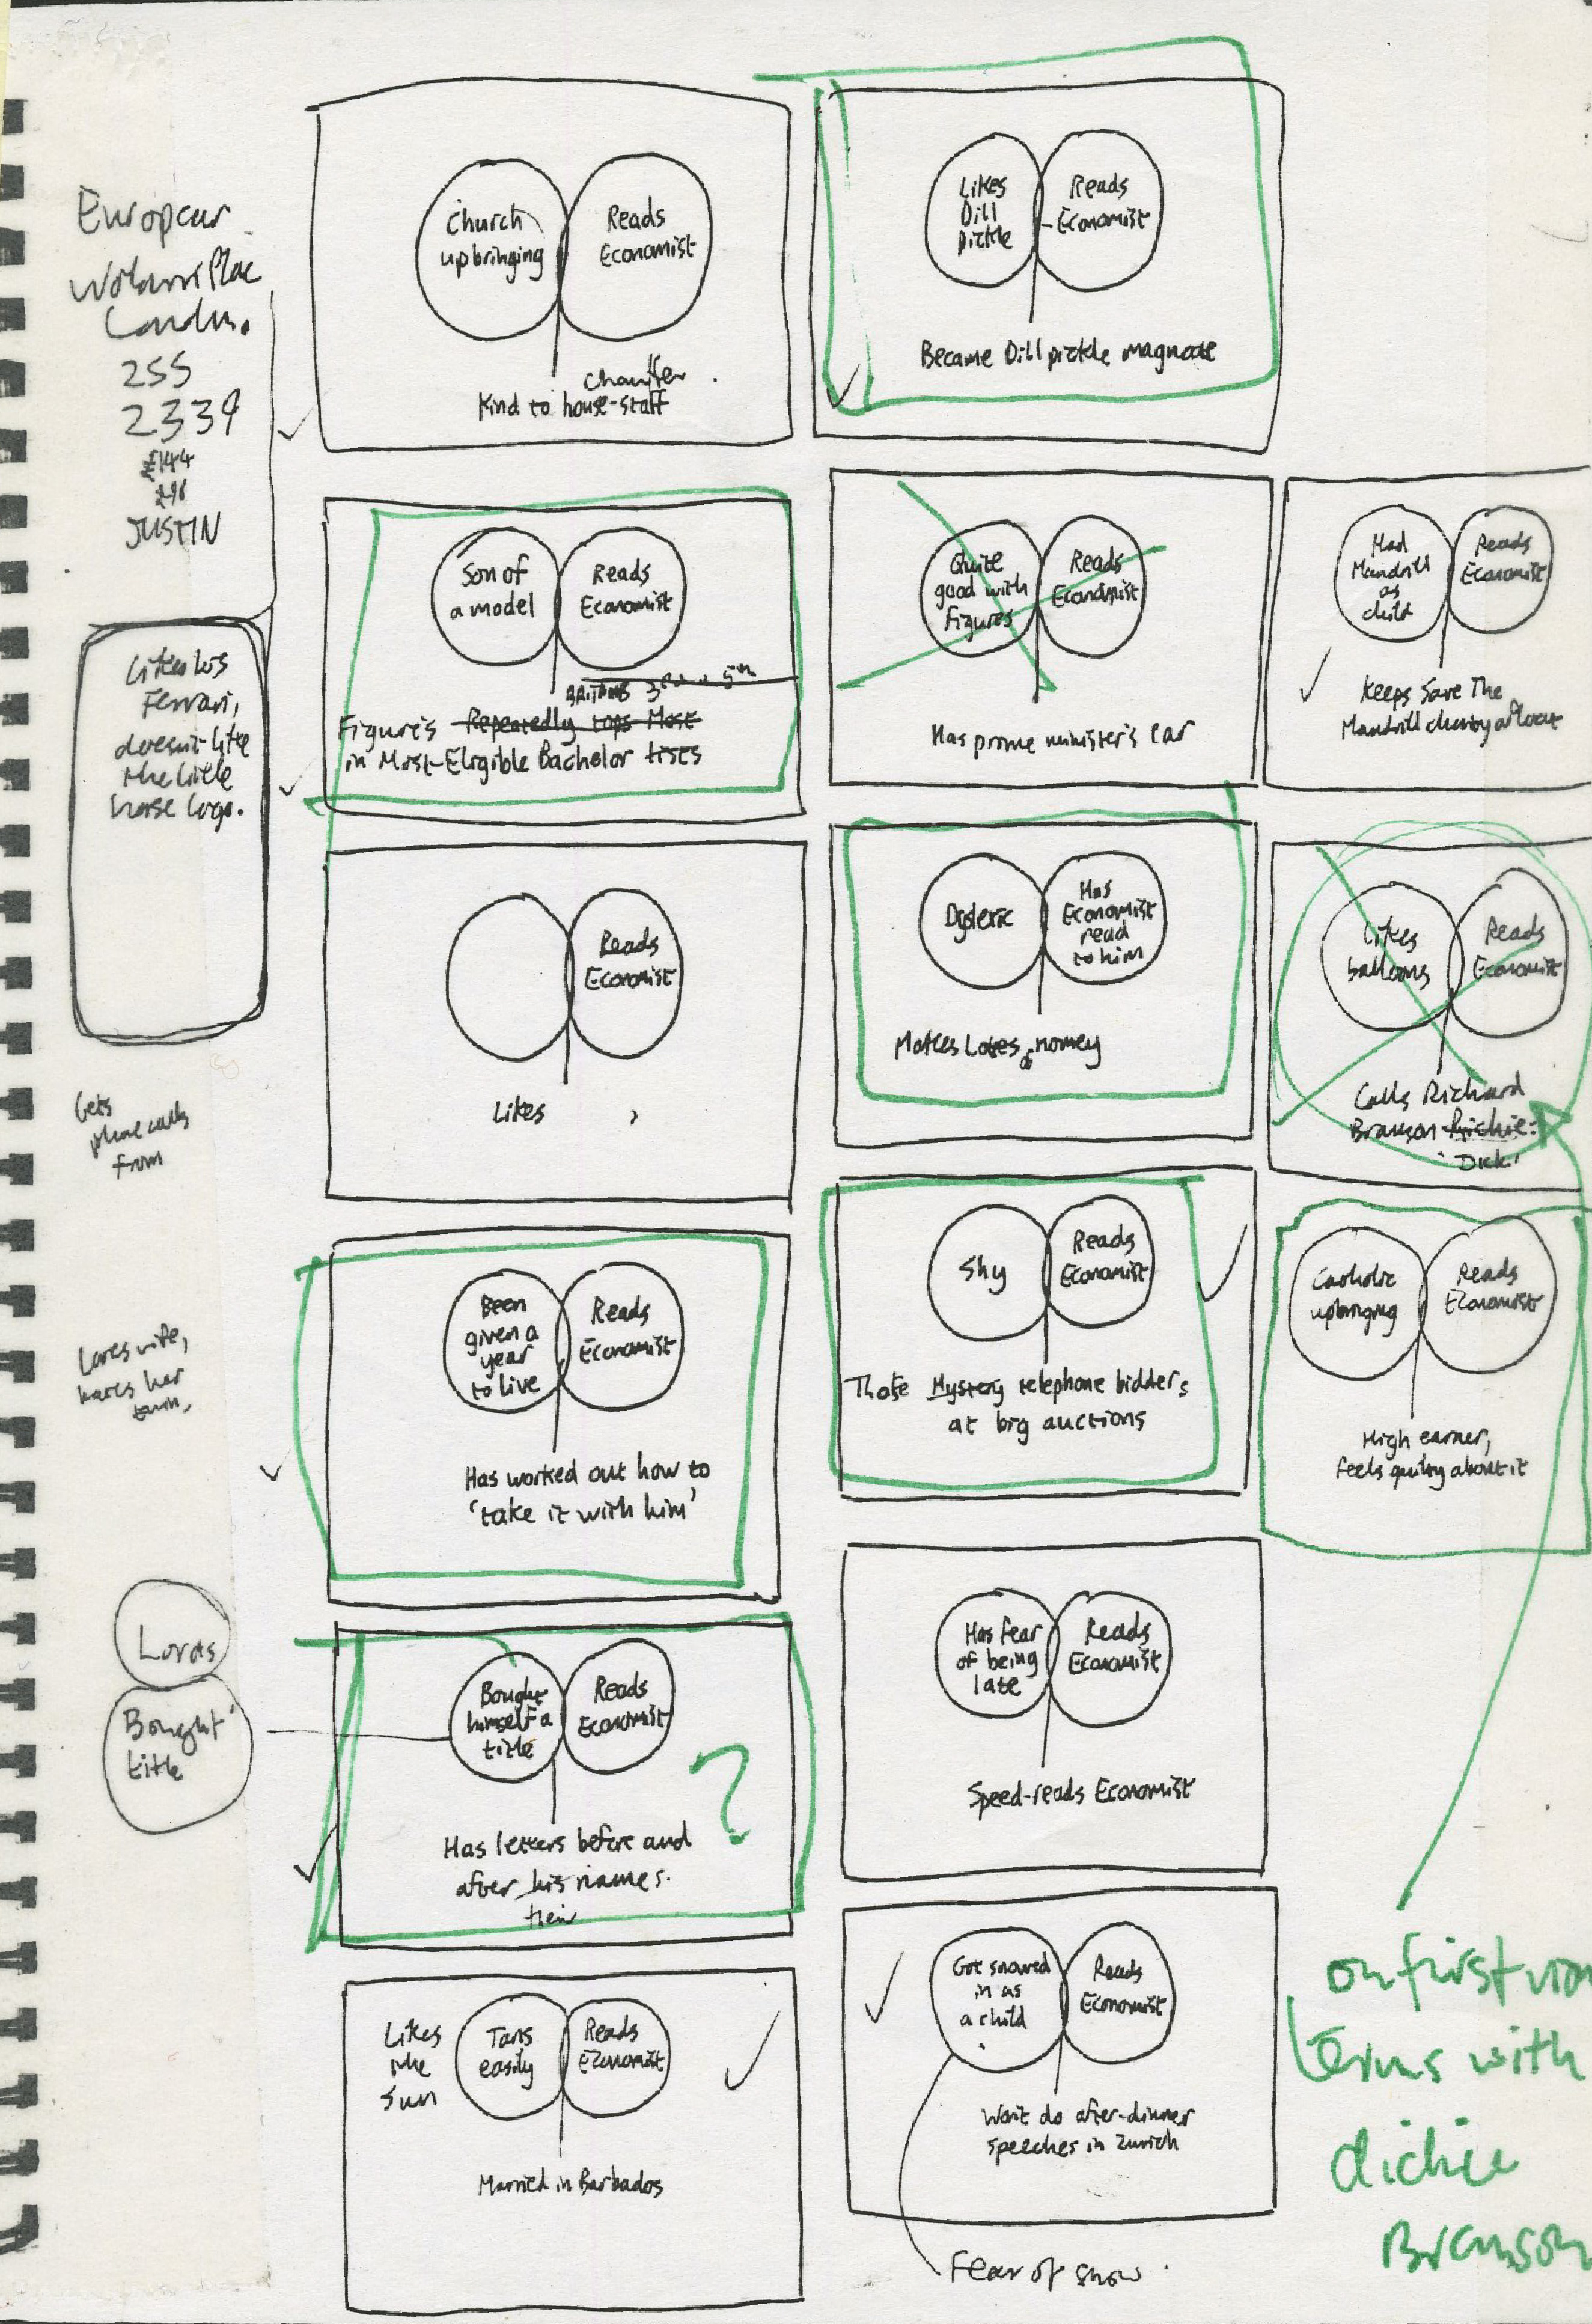 Europcar
London.
255
2339
£144
£96
JUSTIN
Likes his
Ferrari,
doesn't like
the little
horse logo.
Gets
phone calls
from
Loves wife,
hates her
twin.
Lords
Bought
title
Church
upbringing
Reads
Economist
chauffer
Kind to house-staff
Likes
Dill
pickle
Reads
Economist
Became Dill pickle magnate
Son of
a model
Reads
Economist
BRITAINS 3rd 5th
Figures Repeatedly tops Most
in Most-Eligible Bachelor lists
Quite
good with
figures
Reads
Economist
Has prime minister's ear
Had
Mandrill
as
child
Reads
Economist
Keeps Save The
Mandrill charity afloat
Reads
Economist
Likes ,
Dyslexic
Has
Economist
read
to him
Makes Lotes of nomey
Likes
balloons
Reads
Economist
Calls Richard
Branson Richie:
'Dick'
Been
given a
year
to live
Reads
Economist
Has worked out how to
'take it with him'
Shy
Reads
Economist
Those Mystery telephone bidders
at big auctions
Catholic
upbringing
Reads
Economist
High earner,
feels guilty about it
Bought
himself a
title
Reads
Economist
?
Has letters before and
after his names.
their
Has fear
of being
late
Reads
Economist
Speed-reads Economist
Likes
the
sun
Tans
easily
Reads
Economist
Married in Barbados
Got snowed
in as
a child
Reads
Economist
Won't do after-dinner
speeches in Zurich
Fear of snow.
on first
terms with
dickie
Branson